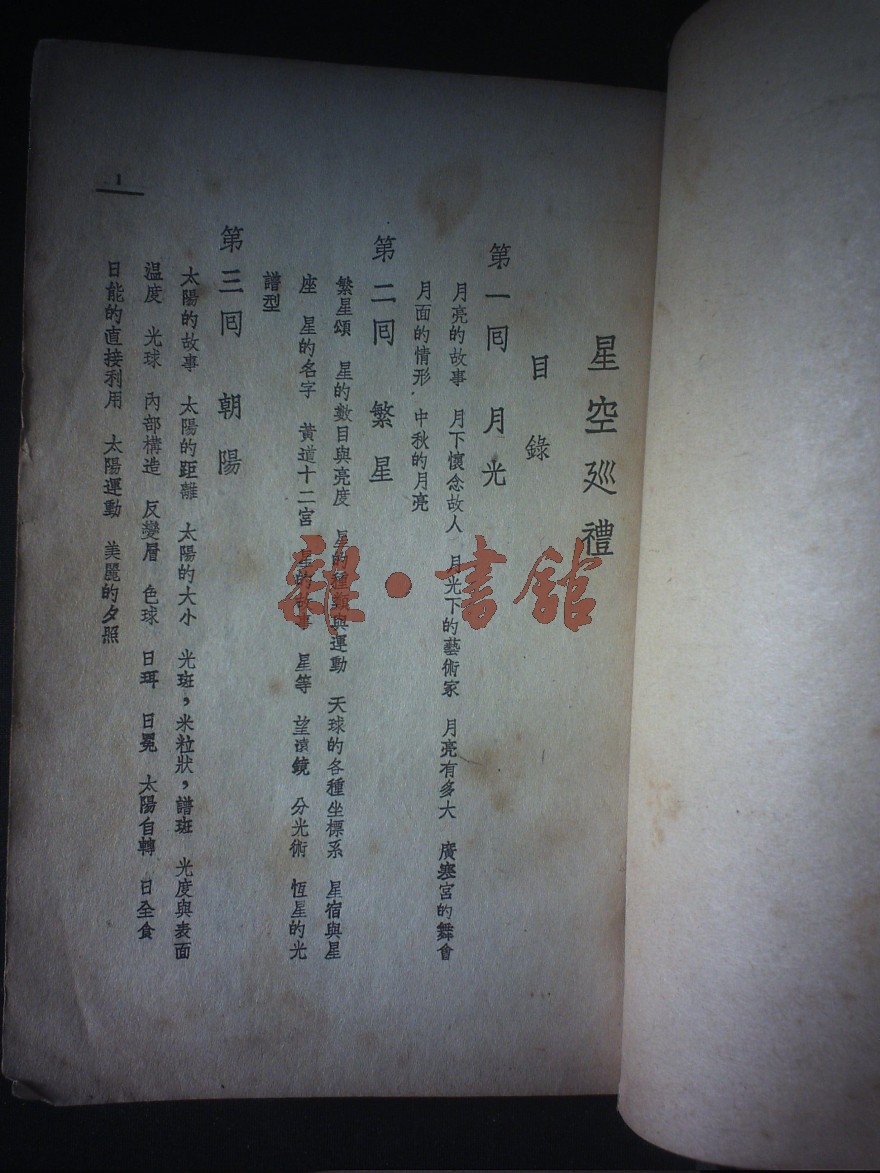 星空巡禮
目錄
第一囘 月光
月亮的故事 月下懷念故人 月光下的藝術家 月亮有多大 廣寒宮的舞會
月面的情形 中秋的月亮
第二囘 繁星
繁星頌 星的數目與亮度 星的種類與運動 天球的各種坐標系 星宿與星
座 星的名字 黃道十二宮 星的故事 星等 望遠鏡 分光術 恆星的光
譜型
第三囘 朝陽
太陽的故事 太陽的距離 太陽的大小 光斑,米粒狀,譜斑 光度與表面
温度 光球 內部構造 反變層 色球 日珥 日冕 太陽自轉 日全食
日能的直接利用 太陽運動 美麗的夕照
1
雜·書館